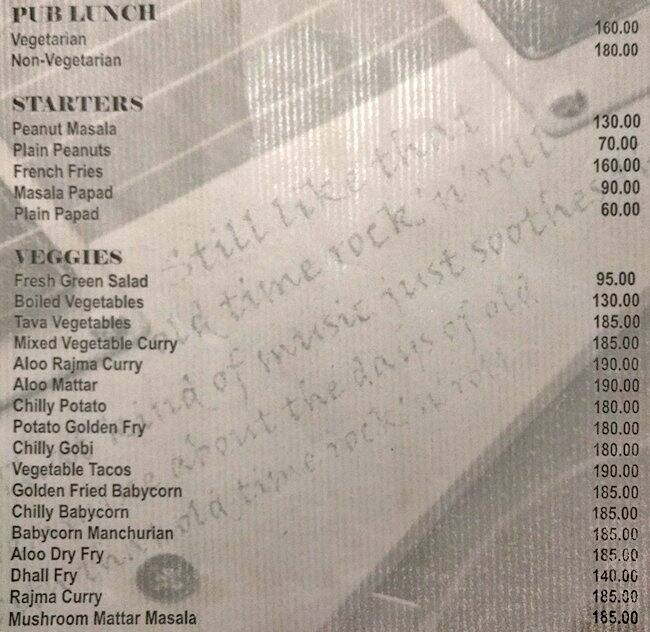 PUB LUNCH
Vegetarian 160.00
Non-Vegetarian 180.00
STARTERS
Peanut Masala 130.00
Plain Peanuts 70.00
French Fries 160.00
Masala Papad 90.00
Plain Papad 60.00
VEGGIES
Fresh Green Salad 95.00
Boiled Vegetables 130.00
Tava Vegetables 185.00
Mixed Vegetable Curry 185.00
Aloo Rajma Curry 190.00
Aloo Mattar 190.00
Chilly Potato 180.00
Potato Golden Fry 180.00
Chilly Gobi 180.00
Vegetable Tacos 190.00
Golden Fried Babycorn 185.00
Chilly Babycorn 185.00
Babycorn Manchurian 185.00
Aloo Dry Fry 185.00
Dhall Fry 140.00
Rajma Curry 185.00
Mushroom Mattar Masala 185.00
Still like that
old time rock 'n' roll
kind of music just soothes
about the days of old
old time rock 'n' roll